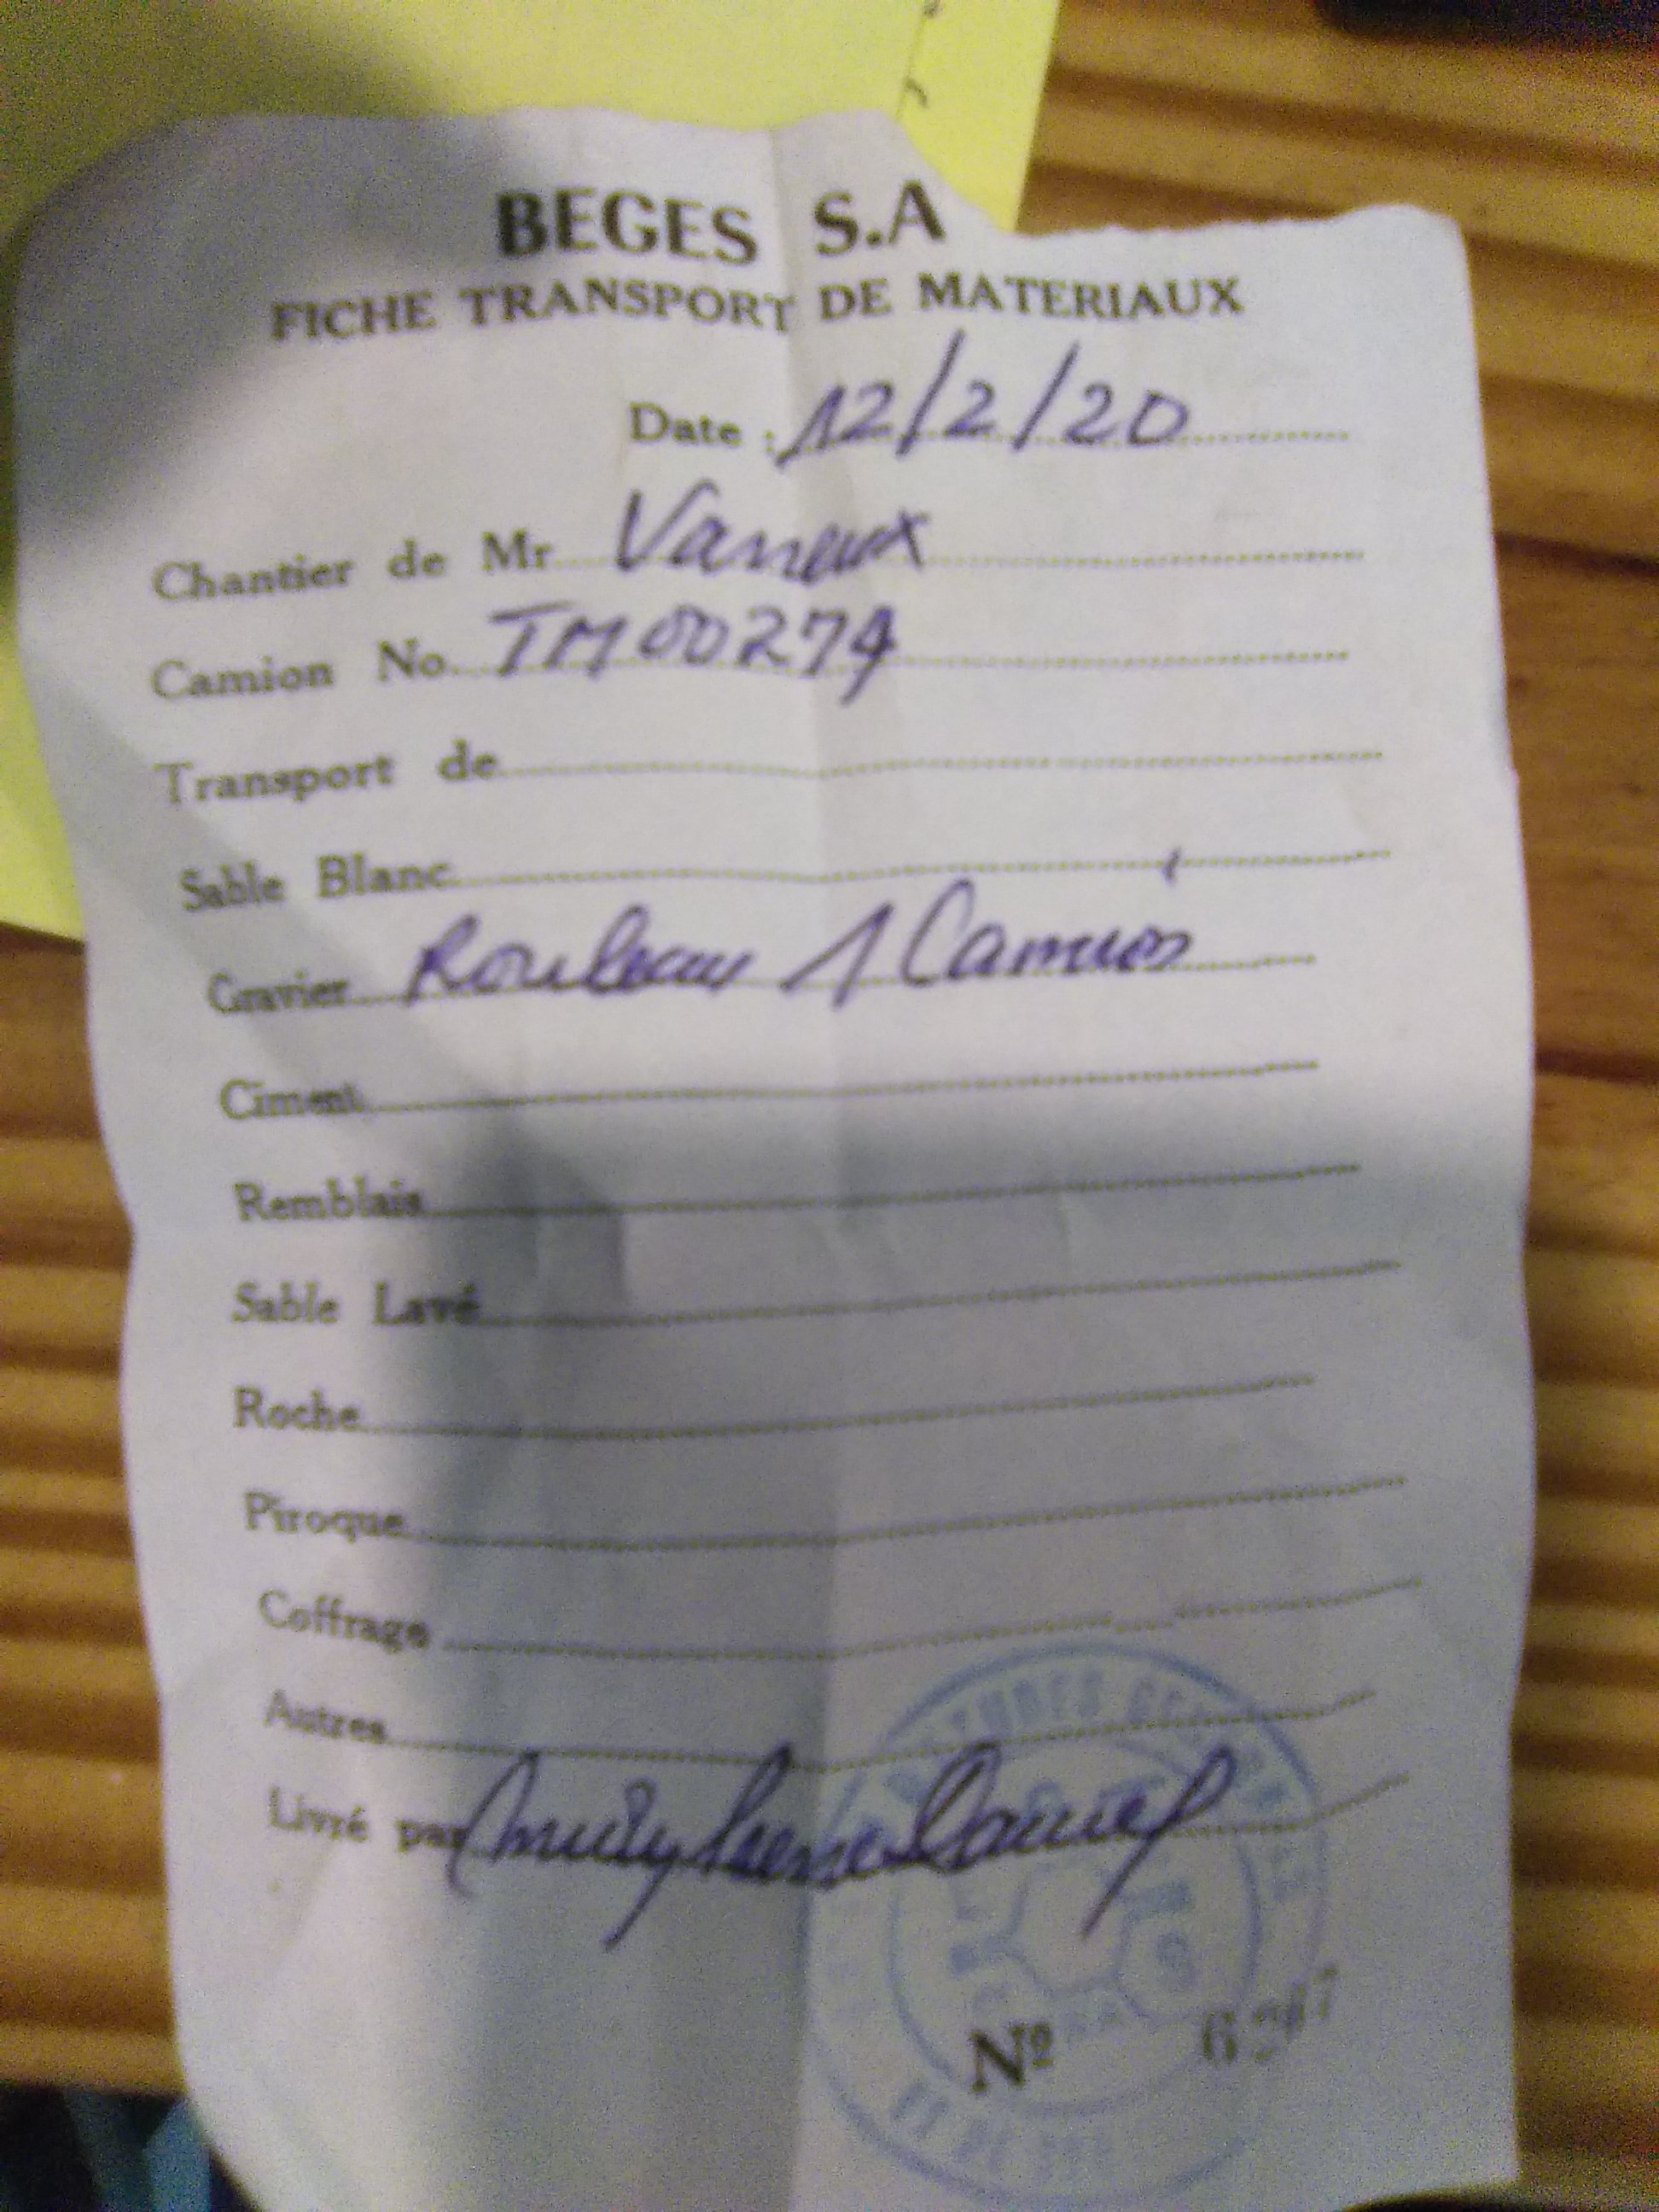 BEGES S.A
FICHE TRANSPORT DE MATERIAUX
Date : 12/2/20
Chantier de Mr Vaneux
Camion No. TM00274
Transport de
Sable Blanc
Gravier Rouleau 1 Camion
Ciment
Remblais
Sable Lavé
Roche
Piroque
Coffrage
Autres
Livré par
Nº